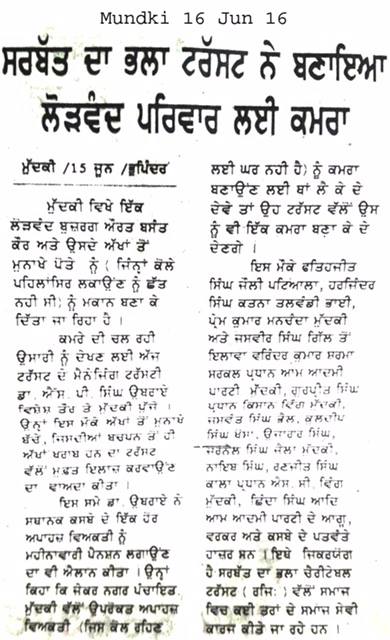 Mundki 16 Jun 16
ਸਰਬੱਤ ਦਾ ਭਲਾ ਟਰੱਸਟ ਨੇ ਬਣਾਇਆ
ਲੋੜਵੰਦ ਪਰਿਵਾਰ ਲਈ ਕਮਰਾ
ਮੁੱਦਕੀ /15 ਜੂਨ /ਭੁਪਿੰਦਰ
ਮੁੱਦਕੀ ਵਿਖੇ ਇੱਕ
ਲੋੜਵੰਦ ਬੁਜ਼ਰਗ ਔਰਤ ਬਸੰਤ
ਕੌਰ ਅਤੇ ਉਸਦੇ ਅੱਖਾਂ ਤੋਂ
ਮੁਨਾਖੇ ਪੋਤੇ ਨੂੰ (ਜਿੰਨ੍ਹਾਂ ਕੋਲੇ
ਪਹਿਲਾਂਸਿਰ ਲਕਾਉਣ ਨੂੰ ਛੱਤ
ਨਹੀ ਸੀ) ਨੂੰ ਮਕਾਨ ਬਣਾ ਕੇ
ਦਿੱਤਾ ਜਾ ਰਿਹਾ ਹੈ ।
ਕਮਰੇ ਦੀ ਚਲ ਰਹੀ
ਉਸਾਰੀ ਨੂੰ ਦੇਖਣ ਲਈ ਅੱਜ
ਟਰੱਸਟ ਦੇ ਮੈਨੇਜਿੰਗ ਟਰੱਸਟੀ
ਡਾ. ਐੱਸ. ਪੀ. ਸਿੰਘ ਉਬਰਾਏ
ਵਿਸ਼ੇਸ਼ ਤੌਰ ਤੇ ਮੁੱਦਕੀ ਪੁੱਜੇ ।
ਉਨ੍ਹਾਂ ਇਸ ਮੌਕੇ ਅੱਖਾਂ ਤੋਂ ਮੁਨਾਖੇ
ਬੱਚੇ, ਜਿਸਦੀਆਂ ਬਚਪਨ ਤੋਂ ਹੀ
ਅੱਖਾਂ ਖਰਾਬ ਹਨ ਦਾ ਟਰੱਸਟ
ਵੱਲੋਂ ਮੁਫ਼ਤ ਇਲਾਜ਼ ਕਰਵਾਉਣ
ਦਾ ਵਾਅਦਾ ਕੀਤਾ ।
ਇਸ ਸਮੇਂ ਡਾ. ਉਬਰਾਏ ਨੇ
ਸਥਾਨਕ ਕਸਬੇ ਦੇ ਇੱਕ ਹੋਰ
ਅਪਾਹਜ਼ ਵਿਅਕਤੀ ਨੂੰ
ਮਹੀਨਾਵਾਰੀ ਪੈਨਸ਼ਨ ਲਗਾਉਣ
ਦਾ ਵੀ ਐਲਾਨ ਕੀਤਾ । ਉਨ੍ਹਾਂ
ਕਿਹਾ ਕਿ ਜੇਕਰ ਨਗਰ ਪੰਚਾਇਤ
ਮੁੱਦਕੀ ਵੱਲੋਂ ਉਪਰੋਕਤ ਅਪਾਹਜ਼
ਵਿਅਕਤੀ (ਜਿਸ ਕੋਲ ਰਹਿਣ
ਲਈ ਘਰ ਨਹੀ ਹੈ) ਨੂੰ ਕਮਰਾ
ਬਣਾਉਂਣ ਲਈ ਥਾਂ ਲੈ ਕੇ ਦੇ
ਦੇਵੇ ਤਾਂ ਉਹ ਟਰੱਸਟ ਵੱਲੋਂ ਉਸ
ਨੂੰ ਵੀ ਇੱਕ ਕਮਰਾ ਬਣਾ ਕੇ ਦੇ
ਦੇਣਗੇ ।
ਇਸ ਮੌਕੇ ਫਤਿਹਜੀਤ
ਸਿੰਘ ਜੌਲੀ ਪਟਿਆਲਾ, ਹਰਜਿੰਦਰ
ਸਿੰਘ ਕਤਨਾ ਤਲਵੰਡੀ ਭਾਈ,
ਪ੍ਰੇਮ ਕੁਮਾਰ ਮਨਚੰਦਾ ਮੁੱਦਕੀ
ਅਤੇ ਜਸਵੀਰ ਸਿੰਘ ਗਿੱਲ ਤੋਂ
ਇਲਾਵਾ ਵਰਿੰਦਰ ਕੁਮਾਰ ਸ਼ਰਮਾ
ਸਰਕਲ ਪ੍ਰਧਾਨ ਆਮ ਆਦਮੀ
ਪਾਰਟੀ ਮੁੱਦਕੀ, ਗੁਰਪ੍ਰੀਤ ਸਿੰਘ
ਪ੍ਰਧਾਨ ਕਿਸਾਨ ਵਿੰਗ ਮੁੱਦਕੀ,
ਜਸਵੰਤ ਸਿੰਘ ਭੋਲ, ਕਲਦੀਪ
ਸਿੰਘ ਖੋਸਾ, ਉਜਾਗਰ ਸਿੰਘ,
ਜਰਨੈਲ ਸਿੰਘ ਜੈਲਾ ਮੁੱਦਕੀ,
ਨਾਇਬ ਸਿੰਘ, ਰਣਜੀਤ ਸਿੰਘ
ਕਾਲਾ ਪ੍ਰਧਾਨ ਐਸ.ਸੀ. ਵਿੰਗ
ਮੁੱਦਕੀ, ਛਿੰਦਾ ਸਿੰਘ ਆਦਿ
ਆਮ ਆਦਮੀ ਪਾਰਟੀ ਦੇ ਆਗੂ,
ਵਰਕਰ ਅਤੇ ਕਸਬੇ ਦੇ ਪਤਵੰਤੇ
ਹਾਜ਼ਰ ਸਨ । ਇਥੇ ਜਿਕਰਯੋਗ
ਹੈ ਸਰਬੱਤ ਦਾ ਭਲਾ ਚੈਰੀਟੇਬਲ
ਟਰੱਸਟ (ਰਜਿ:) ਵੱਲੋਂ ਸਮਾਜ
ਵਿਚ ਕਈ ਤਰਾਂ ਦੇ ਸਮਾਜ ਸੇਵੀ
ਕਾਰਜ ਕੀਤੇ ਜਾ ਰਹੇ ਹਨ ।